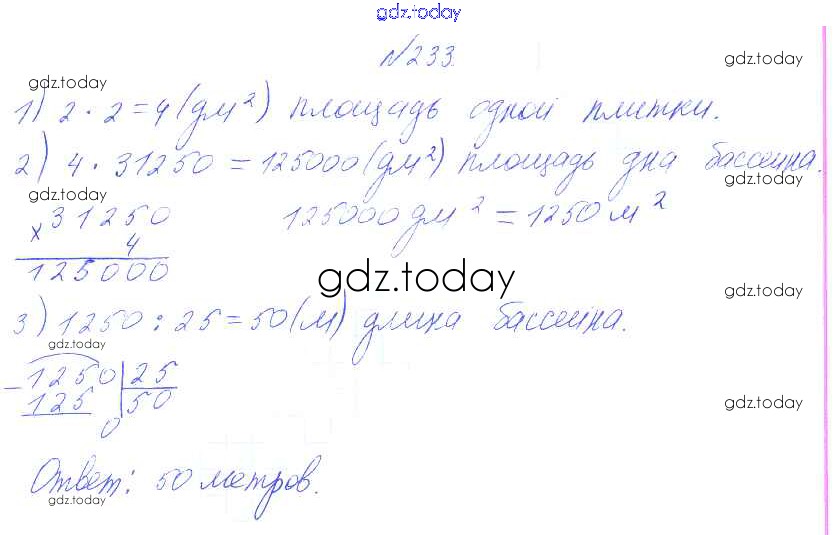 gdz.today
№233.
gdz.today
gdz.today
1) 2 · 2 = 4 (дм²) площадь одной плитки.
2) 4 · 31250 = 125000 (дм²) площадь дна бассейна.
gdz.today
gdz.today
× 31250
4
125000
125000 дм² = 1250 м²
gdz.today
gdz.today
3) 1250 : 25 = 50 (м) длина бассейна.
gdz.today
- 1250 | 25
125 | 50
0
gdz.today
Ответ: 50 метров.
gdz.today